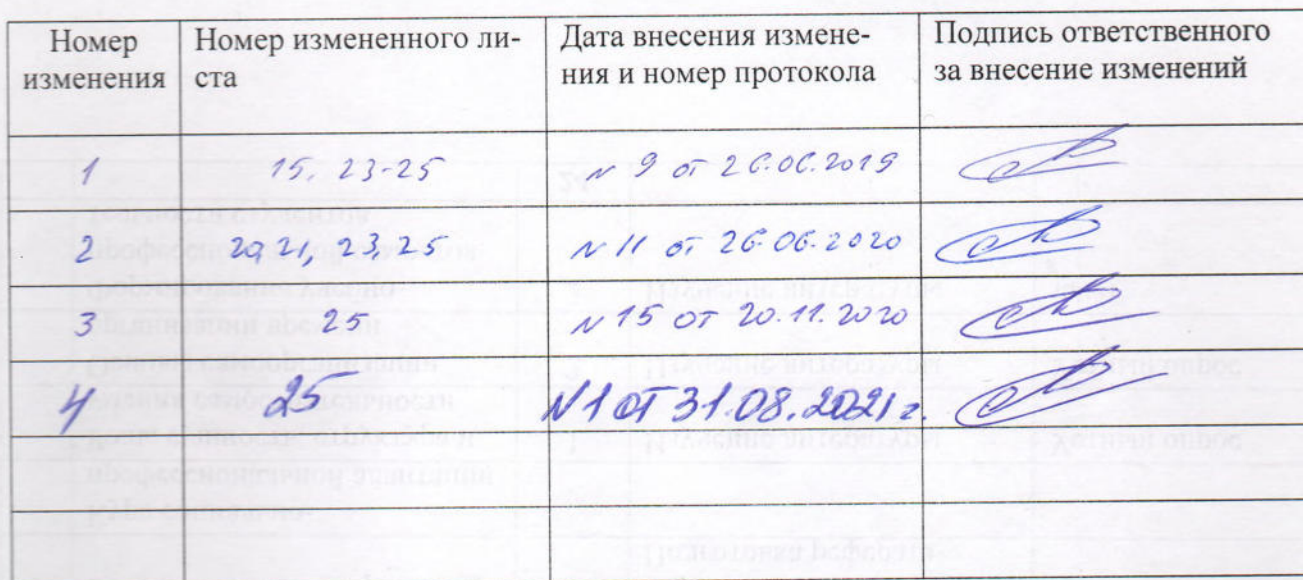 Номер изменения Номер измененного ли-ста Дата внесения измене-ния и номер протокола Подпись ответственного за внесение изменений
1 15, 23-25 N 9 от 26.06.2019
2 20, 21, 23, 25 N 11 от 26.06.2020
3 25 N 15 от 20.11.2020
4 25 N 1 от 31.08.2021 г.